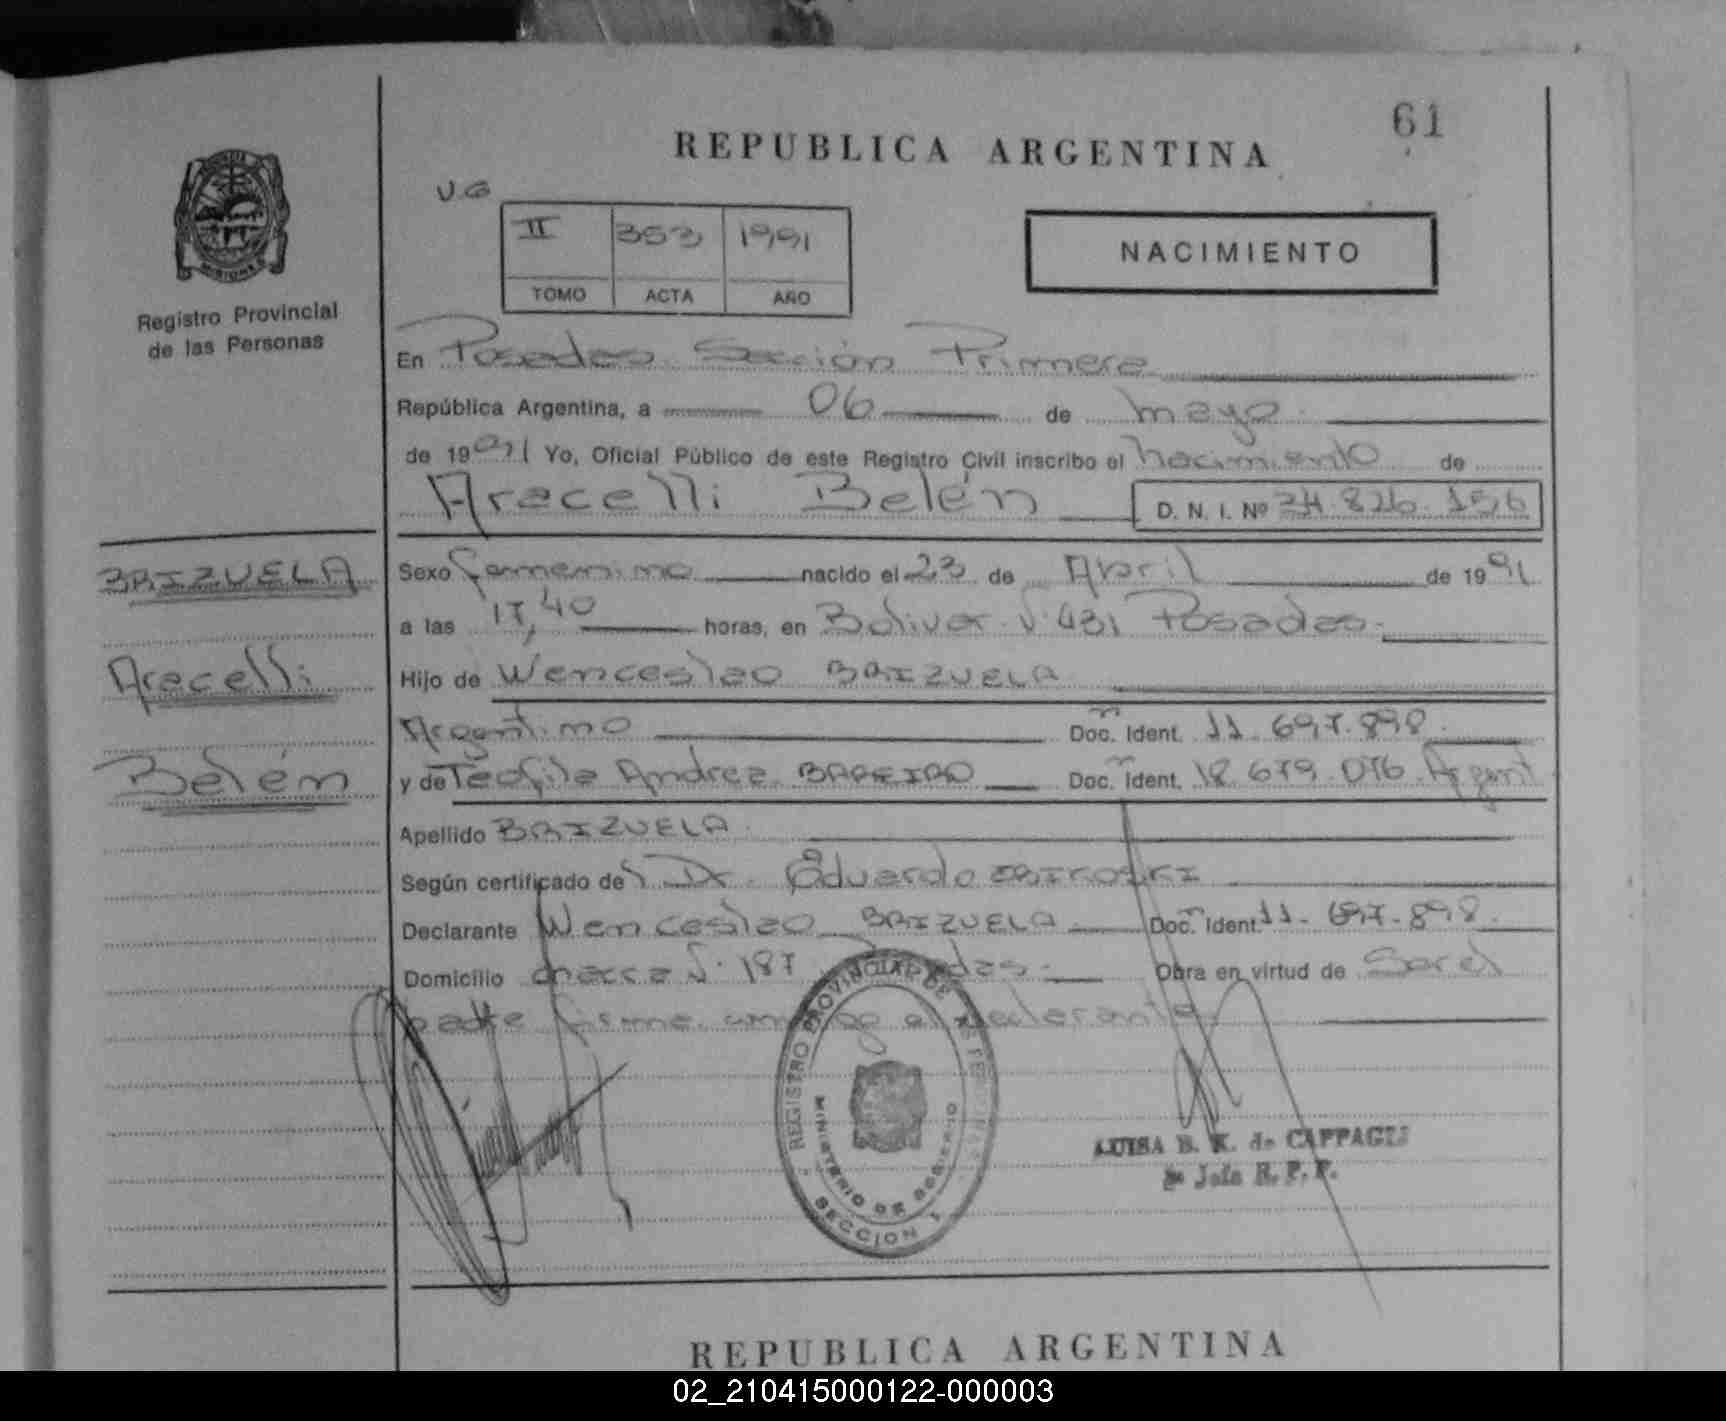 61
REPUBLICA ARGENTINA
PROVINCIA DE MISIONES
Registro Provincial
de las Personas
V.G
II 353 1991
TOMO ACTA AÑO
NACIMIENTO
En Posadas Sección Primera
República Argentina, a 06 de mayo
de 1991 Yo, Oficial Público de este Registro Civil inscribo el nacimiento de
Aracelli Belén D. N. I. Nº 34.826.156
BRIZUELA
Aracelli
Belén
Sexo femenino nacido el 23 de Abril de 1991
a las 17,40 horas, en Bolivar Nº 431 Posadas.
Hijo de Wenceslao BRIZUELA
Argentino Doc. Ident. 11.697.898.
y de Teofila Andrea BAREIRO Doc. Ident. 18.679.076 Argent
Apellido BRIZUELA
Según certificado de Dr. Eduardo
Declarante Wenceslao BRIZUELA Doc. Ident. 11.697.898.
Domicilio chacra Nº 187 Posadas. Obra en virtud de Ser el
padre firma conmigo el declarante
REGISTRO PROVINCIAL DE LAS PERSONAS
MINISTERIO DE GOBIERNO
SECCION 1
LUISA B. K. de CAPPAGLI
Jefa R. P. P.
REPUBLICA ARGENTINA
02_210415000122-000003